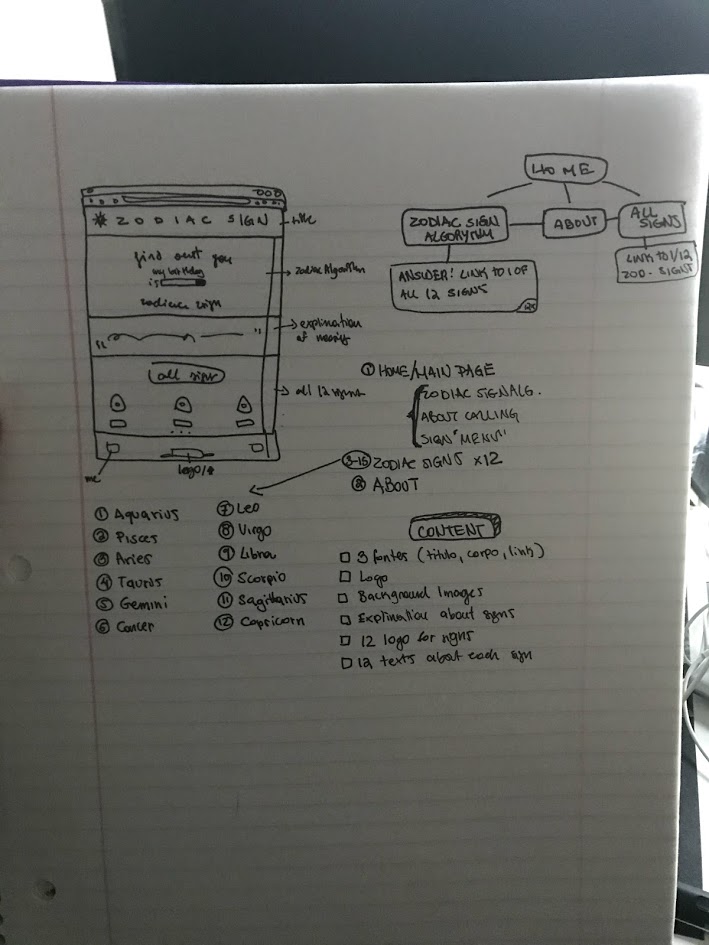 ZODIAC SIGN
title
find out you
my birthday
is
zodiac sign
zodiac Algorithm
explination
of meanig
all signs
all 12 signs
me
logo/*
HOME
ZODIAC SIGN
ALGORYTHM
ABOUT
ALL
SIGNS
ANSDER! LINK TO 1 OF
ALL 12 SIGNS
12x
LINK TO 1/12
ZOD. SIGNS
① HOME/MAIN PAGE
ZODIAC SIGN ALG.
ABOUT CALLING
SIGN "MENU"
3-15 ZODIAC SIGNS x12
② ABOUT
① Aquarius
② Pisces
③ Aries
④ Taurus
⑤ Gemini
⑥ Cancer
⑦ Leo
⑧ Virgo
⑨ Libra
⑩ Scorpio
⑪ Sagittarius
⑫ Capricorn
CONTENT
3 fontes (titulo, corpo, link)
Logo
Background Images
Explination about signs
12 logo for signs
12 texts about each sign